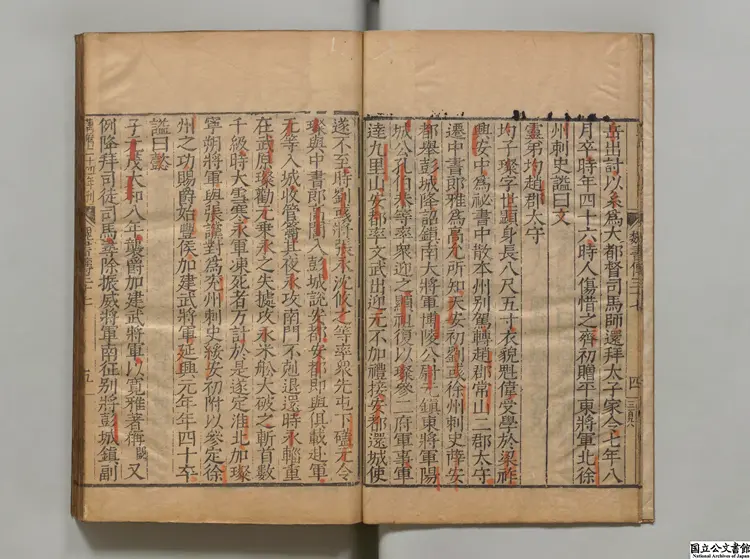 岳出討以系為大都督司馬師還拜太子家令七年八
月卒時年四十六時人傷惜之齊初贈平東將軍北徐
州刺史謚曰文
靈弟均趙郡太守
均子璨字世顯身長八尺五寸衣貌魁偉受學於梁祚
興安中為祕書中散本州別駕轉趙郡常山二郡太守
遷中書郎雅為高允所知天安初劉彧徐州刺史薛安
都舉彭城降詔鎮南大將軍博陵公尉元鎮東將軍陽
城公孔伯恭等率衆迎之顯祖復以璨參二府軍事軍
達九里山安都率文武出迎元不加禮接安都還城使
魏書傳三十七
四
遂不至時劉彧將張永沈攸之等率衆先屯下磕元令
璨與中書郎高閭入彭城說安都安都即與俱載赴軍
元等入城收管籥其夜永攻南門不剋退還時永輜重
在武原璨勸元乘永之失據攻永米船大破之斬首數
千級時大雪寒永軍凍死者万計於是遂定淮北加璨
寧朔將軍與張讜對為兖州刺史綏安初附以參定徐
州之功賜爵始豐侯加建武將軍延興元年年四十卒
謚曰懿
子元茂太和八年襲爵加建武將軍以寬雅著稱闕又
例降拜司徒司馬尋除振威將軍南征別將彭城鎮副
魏書傳三十七
五
国立公文書館
National Archives of Japan